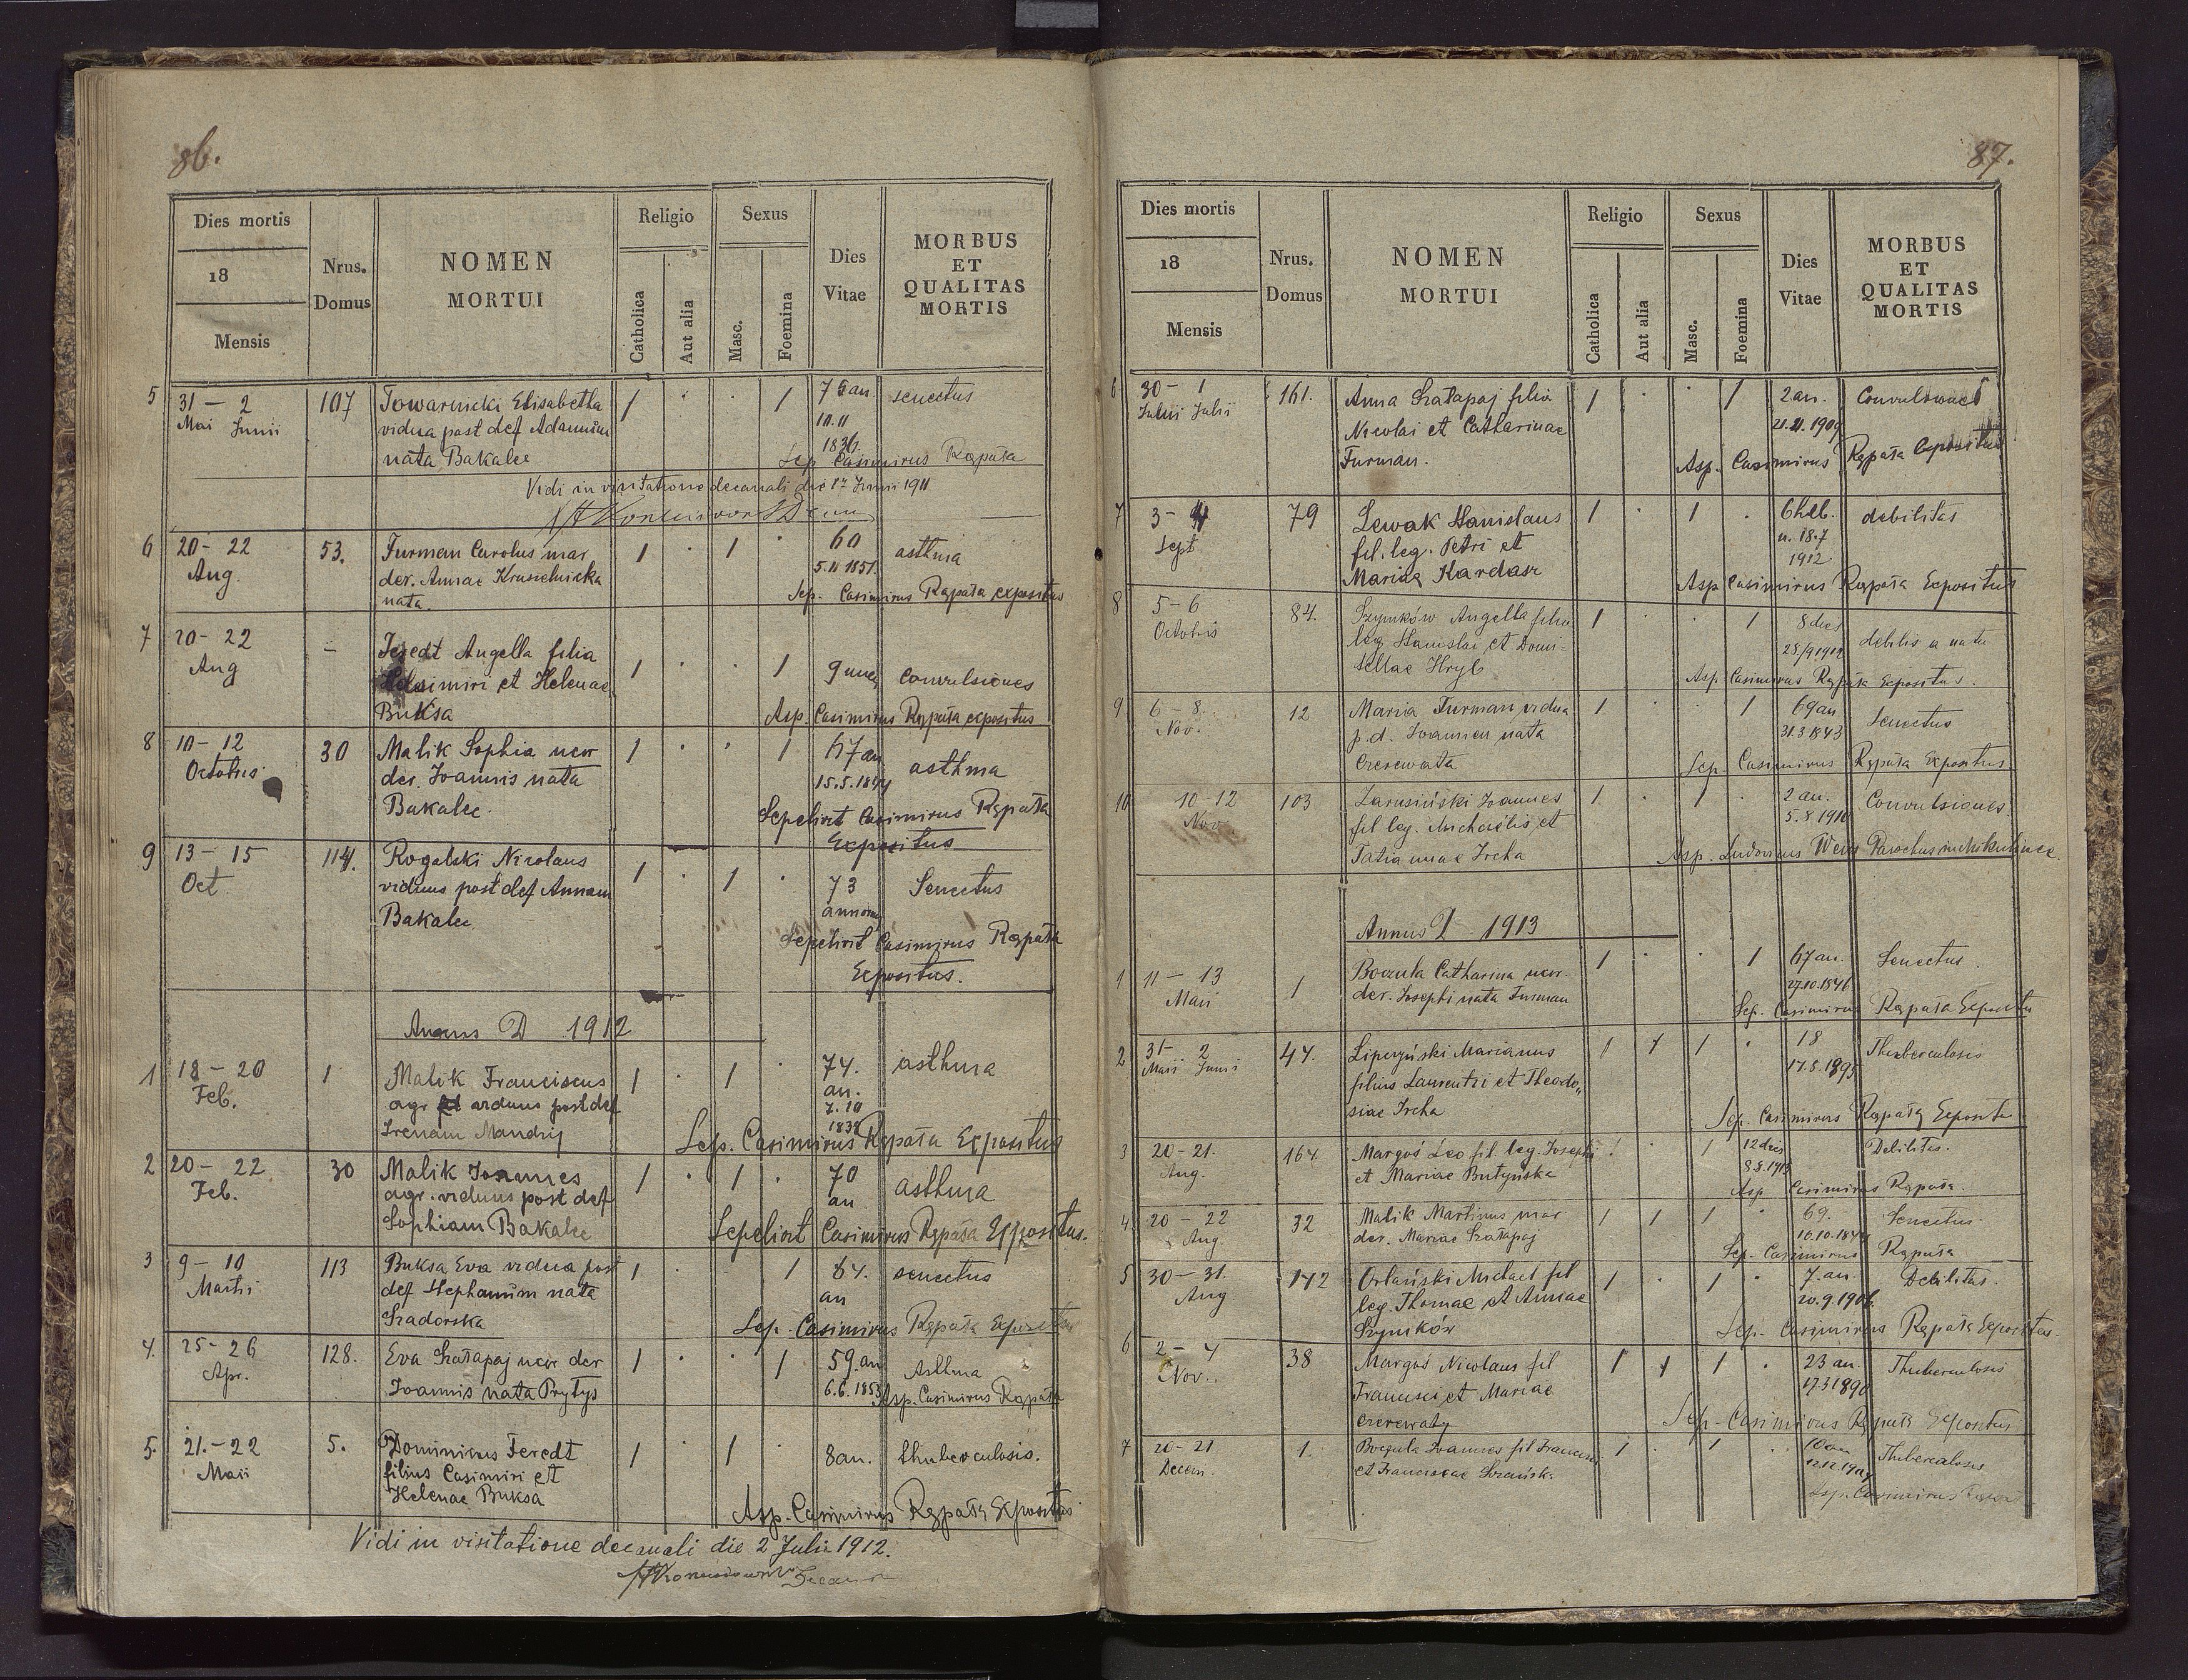 86.
Dies mortis
18
Mensis
Nrus.
Domus
NOMEN
MORTUI
Religio
Catholica
Aut alia
Sexus
Masc.
Foemina
Dies
Vitae
MORBUS
ET
QUALITAS
MORTIS
5 31 – 2 107 Towarnicki Elisabetha 1 · · 1 75 an senectus
Mai Junii vidua post def Adamum 10.11
nata Bakalec 1836
Sep Casimirus Rąpała
Vidi in visitatione decanali die 17 Junii 1911
6 20 – 22 53. Furman Carolus mar 1 · 1 · 60 asthma
Aug. der. Annae Krusielnicka 5.11 1851
nata. Sep. Casimirus Rąpała expositus
7 20 – 22 – Feredt Angella filia 1 · · 1 9 mens convulsiones
Aug Casimiri et Helenae
Buksa Asp. Casimirus Rąpała expositus
8 10 – 12 30 Malik Sophia uxor 1 · · 1 67 an asthma
Octobris der. Joannis nata 15.5.1844
Bakalec. Sepelivit Casimirus Rąpała
Expositus
9 13 – 15 114. Rogalski Nicolaus 1 · 1 · 73 Senectus
Oct. viduus post def Annam annorum
Bakalec Sepelivit Casimirus Rąpała
Expositus.
Annus D 1912
1 18 – 20 1 Malik Franciscus 1 · 1 · 74. asthma
Feb. agr. viduus post def an.
7.10
Irenam Mandrij 1838
Sep. Casimirus Rąpała Expositus
2 20 – 22 30 Malik Joannes 1 · 1 · 70 asthma
Feb. agr. viduus post def an
Sophiam Bakalec Sepelivit Casimirus Rąpała Expositus.
3 9 – 10 113 Buksa Eva vidua post 1 · · 1 84. senectus
Martii def Stephanum nata an
Szadorska Sep. Casimirus Rąpała Expositus
4. 25 – 26 128. Eva Szałapaj uxor der 1 · · 1 59. an Asthma
Apr. Joannis nata Prytys 6.6.1853 Asp. Casimirus Rąpała
5. 21. – 22 5. Dominicus Feredt 1 · 1 8 an. thuberculosis.
Maii filius Casimiri et
Helenae Buksa
Asp. Casimirus Rąpała Expositus
Vidi in visitatione decanali die 2 Julii 1912.
87.
Dies mortis
18
Mensis
Nrus.
Domus
NOMEN
MORTUI
Religio
Catholica
Aut alia
Sexus
Masc.
Foemina
Dies
Vitae
MORBUS
ET
QUALITAS
MORTIS
6 30 – 1 161. Anna Szałapaj filia 1 · · 1 2 an. Convulsiones
Junii Julii Nicolai et Catharinae 21.11.1909
Furman. Asp. Casimirus Rąpała Expositus
7 3 – 4 79 Lewak Stanislaus 1 · 1 · 6 heb. debilitas
Sept fil. leg. Petri et n. 18.7
Maria Kardasz 1912
Asp Casimirus Rąpała Expositus
8 5 – 6 84. Szymków Angella filia 1 · · 1 8 dies debilis a natu
Octobris leg Stanislai et Domi- 28/9 1912
sellae Hryb Asp Casimirus Rąpała Expositus.
9 6 – 8. 12 Maria Furman vidua 1 · · 1 69 an Senectus
Nov. p. d. Joannem nata 31.3 1843
Czerewata Sep. Casimirus Rąpała Expositus
10 10 – 12 103 Zarusiński Joannes 1 · 1 · 2 an. Convulsiones.
Nov. fil leg. Michaëlis et 5.8 1910
Tatiannae Ircha Asp. Ludovicus Weiss Parochus in Mikulince.
Annus D 1913
1 11 – 13 1 Boczula Catharina uxor. 1 · · 1 67 an. Senectus.
Maii der. Josephi nata Furman 27.10.1846
Sep. Casimirus Rąpała Expositus
2 31 – 2 47. Lipczyński Marianus 1 1 1 · 18 Thuberculosis
Maii Junii filius Laurentii et Theodo„ 17.8.1895
siae Ircha Sep. Casimirus Rąpała Expositus
3 20 – 21. 164 Margoś Leo fil. leg. Josephi 1 · 1 12 dies Debilitas.
Aug. et Mariae Butyńska 8.8.1913
Asp Casimirus Rąpała.
4 20 – 22 32 Malik Martinus mar 1 1 1 · 69. Senectus.
Aug. der. Mariae Szałapaj 10.10.1844
Sep. Casimirus Rąpała
5 30 – 31. 142 Orlański Michael fil 1 · 1 · 7. an. Debilitas.
Aug. leg. Thomae et Annae 20.9.1906.
Szymków Sep. Casimirus Rąpała Expositus.
6 2 – 4 38 Margoś Nicolaus fil 1 1 1 · 23 an. Thuberculosis
Nov. Francisci et Mariae 17.3 1890
Czerewaty Sep. Casimirus Rąpała Expositus
7 20 – 21 1. Boczula Joannes fil Francisci 1 · 1 · 10 an Thuberculosis
Decem. et Franciscae 12.12.1903
Asp. Casimirus Rąpała